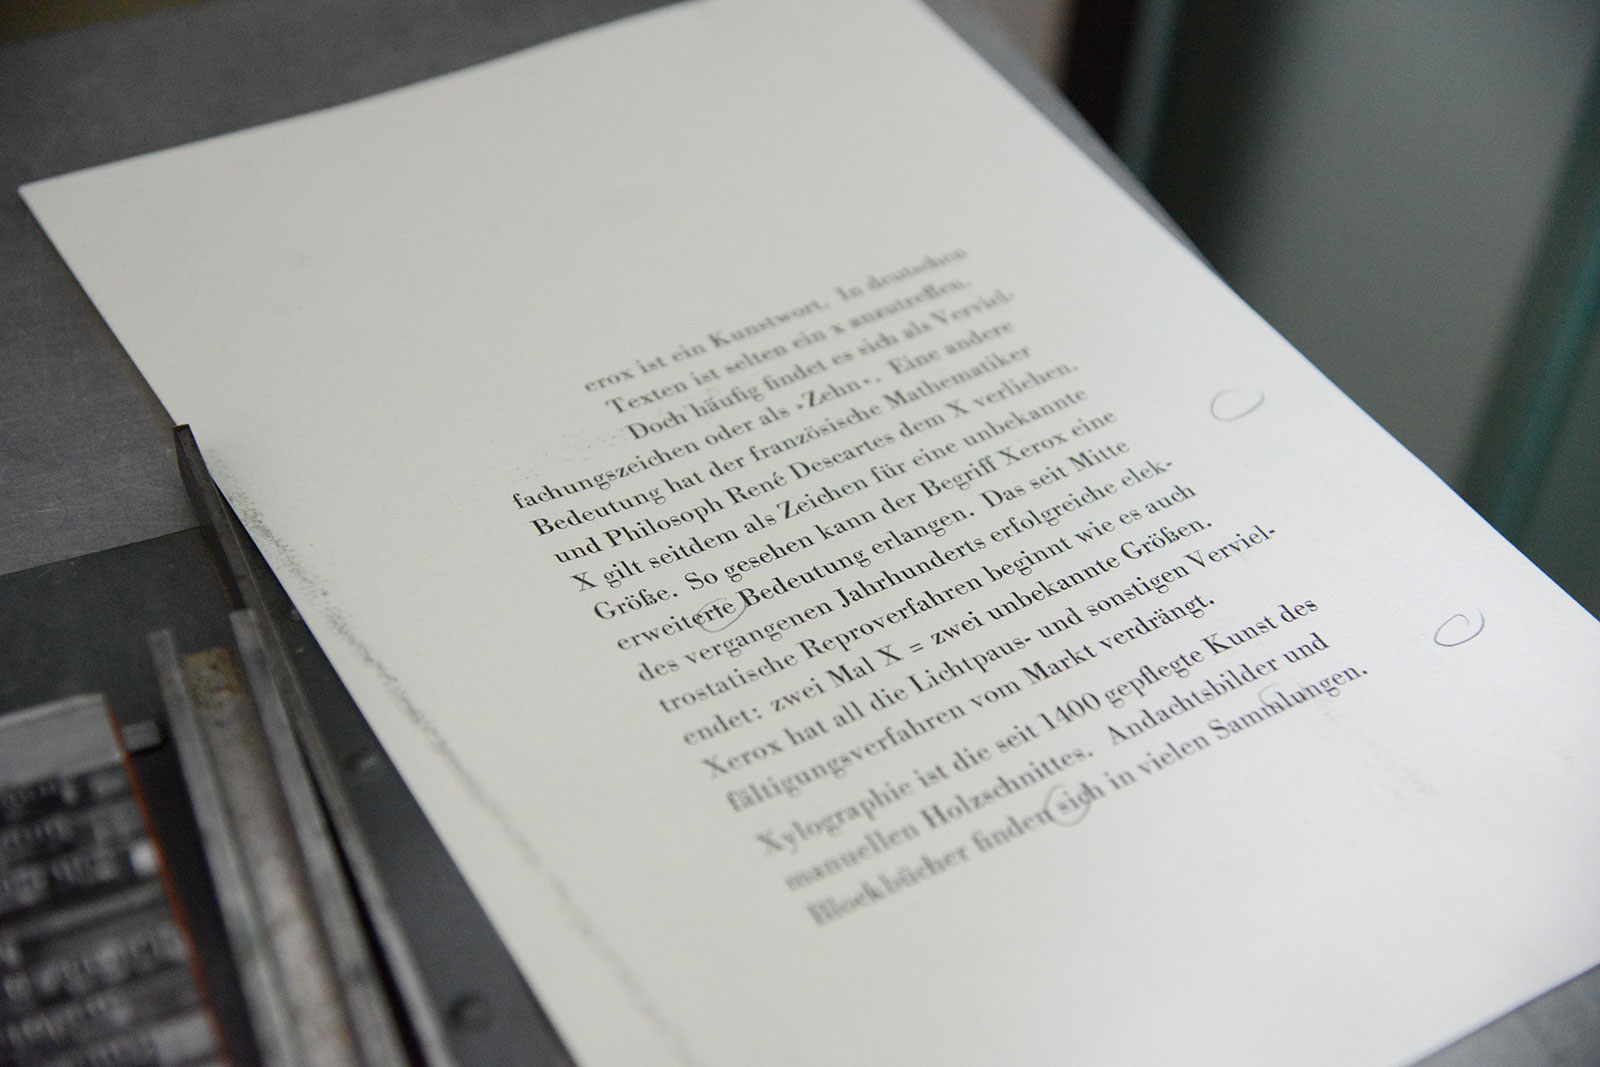 erox ist ein Kunstwort. In deutschen
Texten ist selten ein x anzutreffen.
Doch häufig findet es sich als Verviel-
fachungszeichen oder als »Zehn«. Eine andere
Bedeutung hat der französische Mathematiker
und Philosoph René Descartes dem X verliehen.
X gilt seitdem als Zeichen für eine unbekannte
Größe. So gesehen kann der Begriff Xerox eine
erweiterte Bedeutung erlangen. Das seit Mitte
des vergangenen Jahrhunderts erfolgreiche elek-
trostatische Reproverfahren beginnt wie es auch
endet: zwei Mal X = zwei unbekannte Größen.
Xerox hat all die Lichtpaus- und sonstigen Verviel-
fältigungsverfahren vom Markt verdrängt.
Xylographie ist die seit 1400 gepflegte Kunst des
manuellen Holzschnittes. Andachtsbilder und
Blockbücher finden sich in vielen Sammlungen.